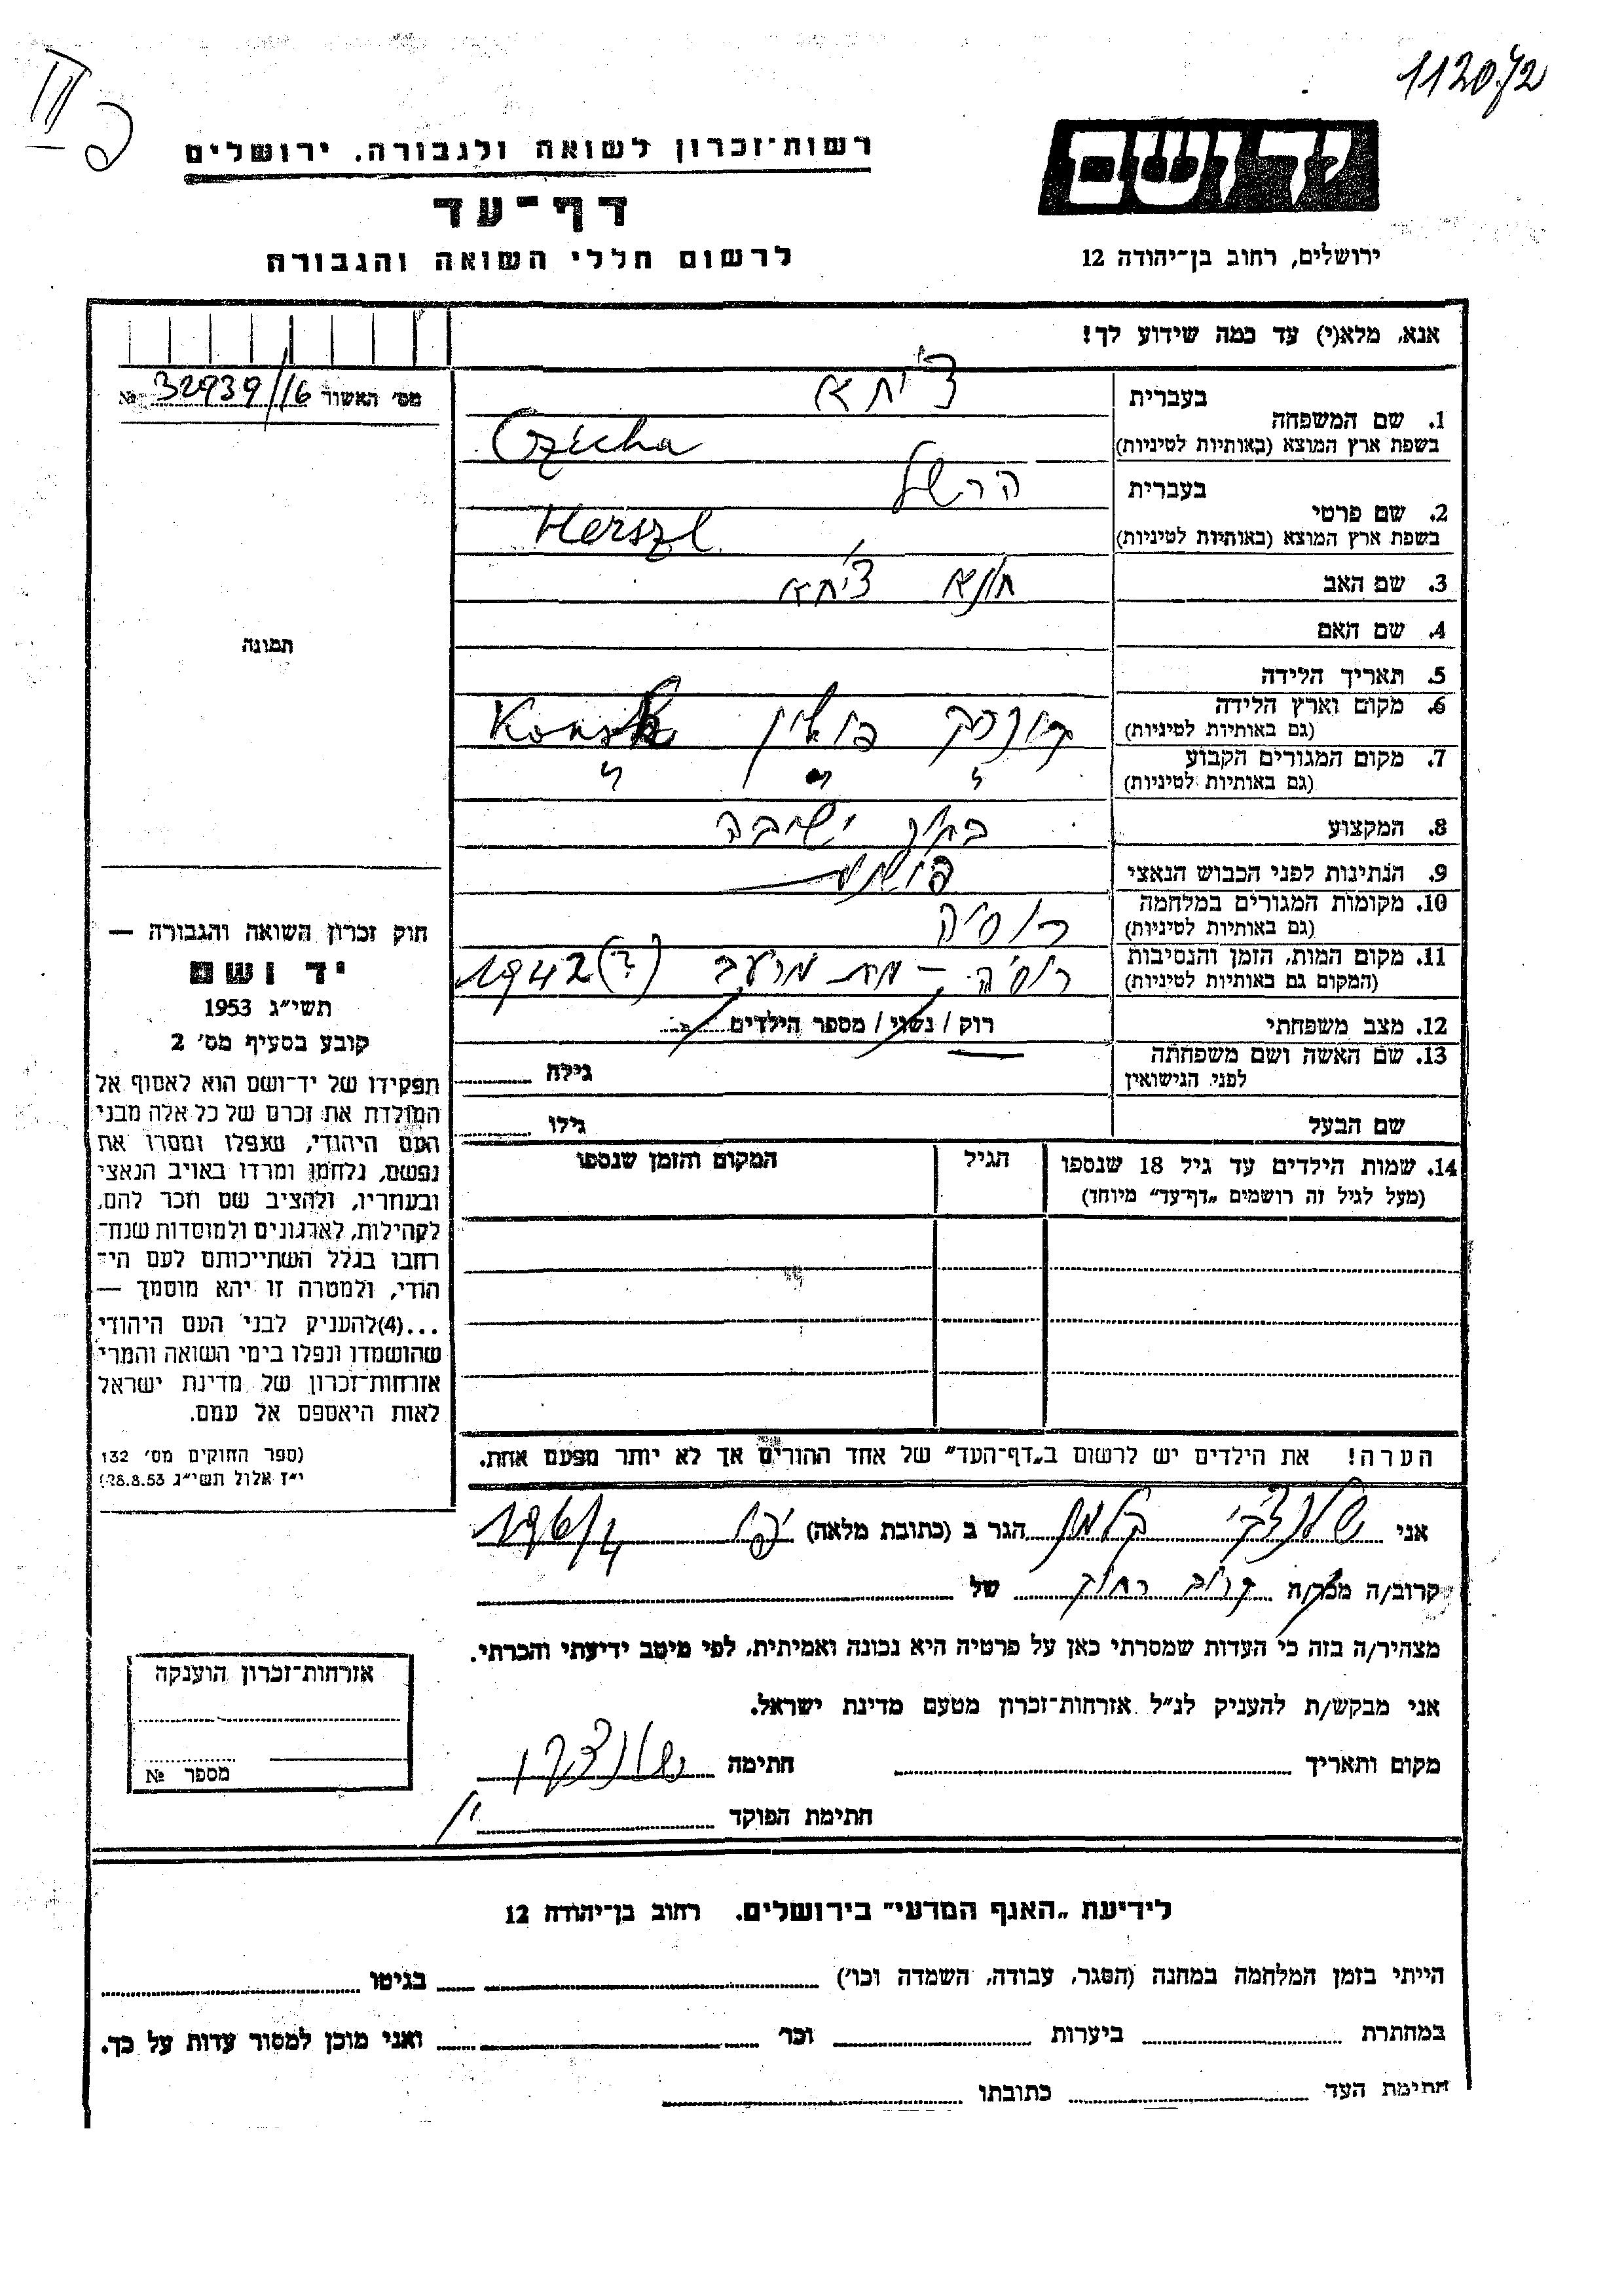 112072
III
רשות־זכרון לשואה ולגבורה. ירושלים
יד ושם
דף־עד
ירושלים, רחוב בן־יהודה 12
לרשום חללי השואה והגבורה
אנא, מלא(י) עד כמה שידוע לך!
מס׳ האשור 32939/16 №
1. שם המשפחה
בעברית צ׳יחא
בשפת ארץ המוצא (באותיות לטיניות) Czicha
2. שם פרטי
בעברית הרשל
בשפת ארץ המוצא (באותיות לטיניות) Herszl
3. שם האב חונא צ׳יחא
4. שם האם
תמונה
5. תאריך הלידה
6. מקום וארץ הלידה
(גם באותיות לטיניות) פולין
7. מקום המגורים הקבוע
(גם באותיות לטיניות) " " "
8. המקצוע בחור ישיבה
9. הנתינות לפני הכבוש הנאצי
10. מקומות המגורים במלחמה
(גם באותיות לטיניות) רוסיה
11. מקום המות, הזמן והנסיבות
(המקום גם באותיות לטיניות) רוסיה - מת מרעב 1942 (?)
12. מצב משפחתי רוק / נשוי / מספר הילדים
13. שם האשה ושם משפחתה
לפני הנישואין גילה
שם הבעל גילו
14. שמות הילדים עד גיל 18 שנספו
(מעל לגיל זה רושמים „דף־עד" מיוחד)
הגיל
המקום והזמן שנספו
חוק זכרון השואה והגבורה —
יד ושם
תשי״ג 1953
קובע בסעיף מס׳ 2
תפקידו של יד־ושם הוא לאסוף אל
המולדת את זכרם של כל אלה מבני
העם היהודי, שנפלו ומסרו את
נפשם, נלחמו ומרדו באויב הנאצי
ובעוזריו, ולהציב שם וזכר להם,
לקהילות, לארגונים ולמוסדות שנח־
רחבו בגלל השתייכותם לעם הי־
הודי, ולמטרה זו יהא מוסמך —
...(4) להעניק לבני העם היהודי
שהושמדו ונפלו בימי השואה והמרי
אזרחות־זכרון של מדינת ישראל
לאות היאספם אל עמם.
(ספר החוקים מס׳ 132
י״ז אלול תשי״ג 28.8.53)
הערה! את הילדים יש לרשום ב„דף־העד" של אחד ההורים אך לא יותר מפעם אחת.
אני קלמן הגר ב (כתובת מלאה) יפו 196/4
קרוב/ה מכר/ה קרוב רחוק של
מצהיר/ה בזה כי העדות שמסרתי כאן על פרטיה היא נכונה ואמיתית, לפי מיטב ידיעתי והכרתי.
אני מבקש/ת להעניק לנ״ל אזרחות־זכרון מטעם מדינת ישראל.
מקום ותאריך חתימה
חתימת הפוקד
אזרחות־זכרון הוענקה
מספר №
לידיעת „האגף המדעי" בירושלים. רחוב בן־יהודה 12
הייתי בזמן המלחמה במחנה (הסגר, עבודה, השמדה וכו׳) בגיטו
במחתרת ביערות וכו׳ ואני מוכן למסור עדות על כך.
חתימת העד כתובתו